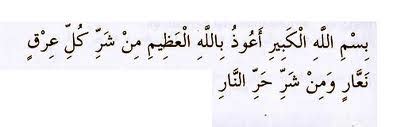 بِسْمِ اللَّهِ الْكَبِيرِ أَعُوذُ بِاللَّهِ الْعَظِيمِ مِنْ شَرِّ كُلِّ عِرْقٍ
نَعَّارٍ وَمِنْ شَرِّ حَرِّ النَّارِ